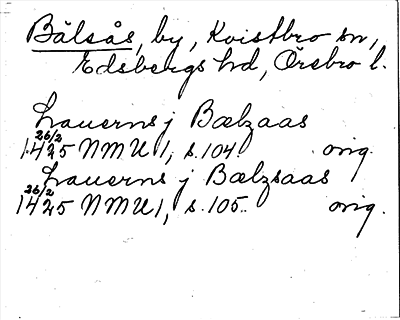 Bälsås, by, Kvistbro sn,
Edsbergs hd, Örebro l.
Lauerns j Bælzaas
26/2
1425 NMU 1, s. 104. orig.
Lauerns j Bælzsaas
26/2
1425 NMU 1, s. 105. orig.